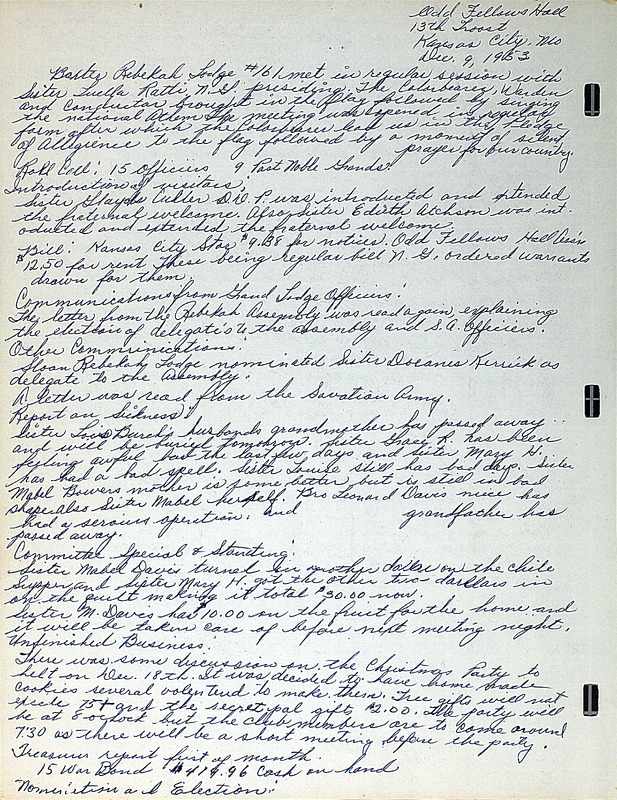 Odd Fellows Hall
13th Troost
Kansas City, Mo
Dec. 9, 1953
Baxter Rebekah Lodge #161 met in regular session with
Sister Luella Ratti, N.G. presiding. The Colorbearer, Warden
and Conductor brought in the flag followed by singing
the national Athem. The meeting was opened in regular
form after which the colorbearer lead us in the Pledge
of Allegience to the flag followed by a moment of silent
prayer for our country.
Roll Call: 15 Officers 9 Past Noble Grands.
Introduction of visitors;
Sister Gladys Tuller D.D.P. was introducted and extended
the fraternal welcome. Also Sister Edith Atchson was int-
oducted and extended the fraternal welcome.
Bill: Kansas City Star $9.38 for notices. Odd Fellows Hall Ass'n
$12.50 for rent. These being regular bill N.G. ordered warrants
drawn for them.
Communications from Grand Lodge Officers:
The letter from the Rebekah Assembly was read again, explaining
the election of delegates to the assembly and S.A. Officers.
Other Commrinications:
Sloan Rebekah Lodge nominated Sister Kerrick as
delegate to the assembly.
A letter was read from the Savation Army.
Report on Sickness:
Sister Lois Burch's husbonds grandmother has passed away
and will be buried tomorrow. Sister Gracy R. has been
feeling awful bad the last few days and Sister Mary H.
has had a bad spell. Sister Louise still has bad days. Sister
Mabel Bowers mother is some better, but is still in bad
shape also Sister Mabel herself. Bro Leonard Davis niece has
had a serious operation. and grandfather has
passed away.
Committee Special & Standing:
Sister Mabel Davis turned in another dollar on the chile
supper and Sister Mary H. got the other two dollars in
on the quilt making it total $30.00 now.
Sister M. Davis has $10.00 on the fruit for the home and
it will be taken care of before next meeting night.
Unfinished Business.
There was some discussion on the Christmas Party to
helt on Dec. 18th. It was decided to have home made
cookies several volentend to make them. Tree gifts will not
excede 75¢ and the secret pal gifts $2.00. The party will
be at 8 o'clock but the club members are to come around
7:30 as there will be a short meeting before the party.
Treasures report first of month.
15 War Bond $419.96 cash on hand
Nomination and Election: